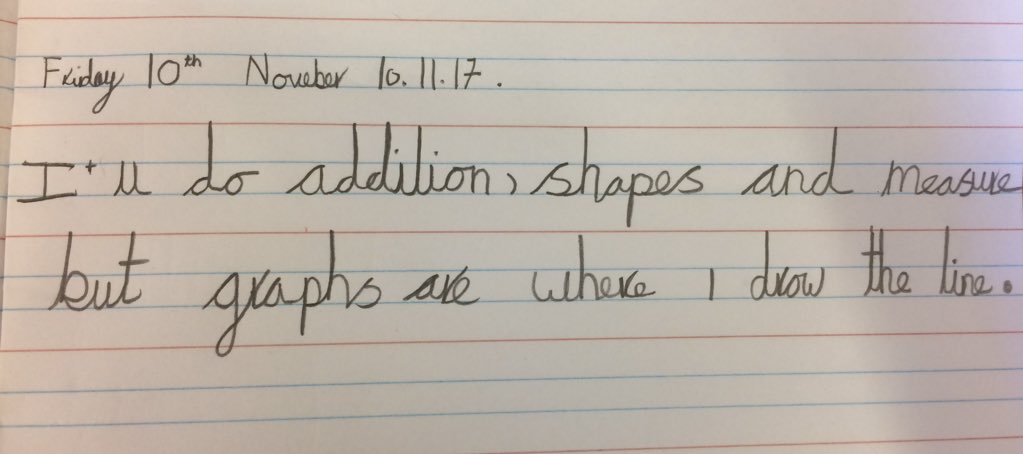 Friday 10th Noveber 10.11.17.
I'll do addition, shapes and measure
but graphs are where I draw the line.